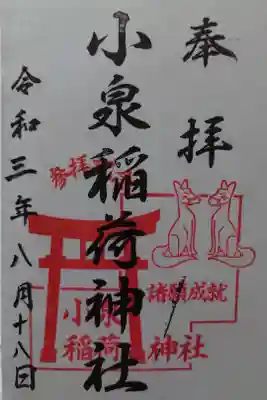 奉拝
小泉稲荷神社
令和三年八月十八日
発拝
諸願成就
小泉
稲荷神社